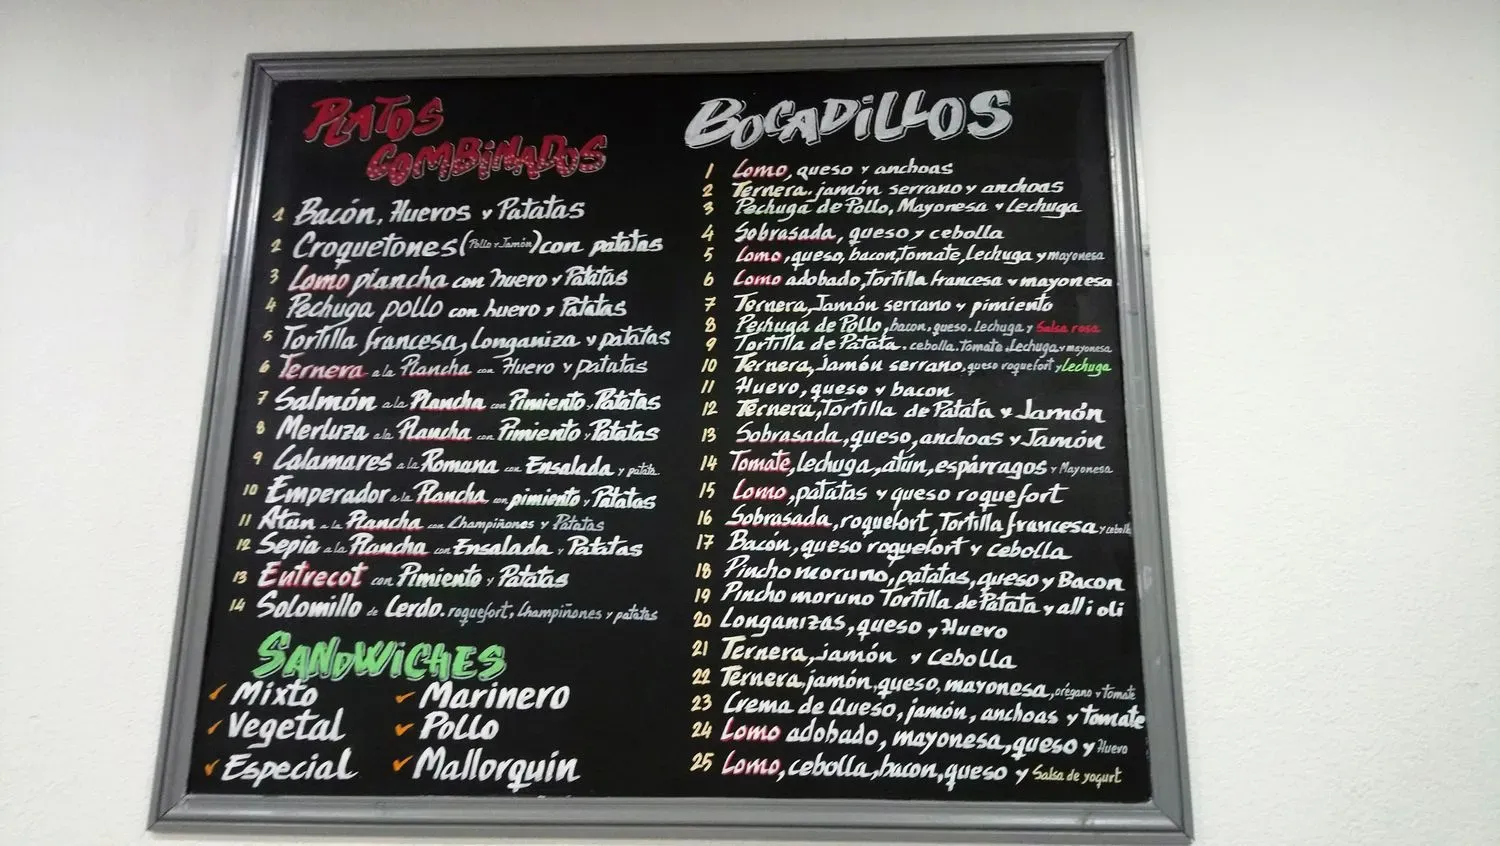 PLATOS
COMBINADOS
1 Bacón, Huevos y Patatas
2 Croquetones (Pollo y Jamón) con patatas
3 Lomo plancha con huevo y Patatas
4 Pechuga pollo con huevo y Patatas
5 Tortilla francesa, Longaniza y patatas
6 Ternera a la Plancha con Huevo y patatas
7 Salmón a la Plancha con Pimiento y Patatas
8 Merluza a la Plancha con Pimiento y Patatas
9 Calamares a la Romana con Ensalada y patata
10 Emperador a la Plancha con pimiento y Patatas
11 Atun a la Plancha con Champiñones y Patatas
12 Sepia a la Plancha con Ensalada y Patatas
13 Entrecot con Pimiento y Patatas
14 Solomillo de Cerdo. roquefort, Champiñones y patatas
SANDWICHES
✓ Mixto
✓ Vegetal
✓ Especial
✓ Marinero
✓ Pollo
✓ Mallorquin
BOCADILLOS
1 Lomo, queso y anchoas
2 Ternera. jamón serrano y anchoas
3 Pechuga de Pollo, Mayonesa y Lechuga
4 Sobrasada, queso y cebolla
5 Lomo, queso, bacon, Tomate, Lechuga y mayonesa
6 Lomo adobado, Tortilla francesa y mayonesa
7 Ternera, Jamón serrano y pimiento
8 Pechuga de Pollo, bacon, queso. Lechuga y Salsa rosa
9 Tortilla de Patata. cebolla. Tomate. Lechuga y mayonesa
10 Ternera, Jamón serrano. queso roquefort y Lechuga
11 Huevo, queso y bacon
12 Ternera, Tortilla de Patata y Jamón
13 Sobrasada, queso, anchoas y Jamón
14 Tomate, lechuga, atún, espárragos y Mayonesa
15 Lomo, patatas y queso roquefort
16 Sobrasada, roquefort, Tortilla francesa y cebolla
17 Bacón, queso roquefort y cebolla
18 Pincho moruno, patatas, queso y Bacon
19 Pincho moruno Tortilla de Patata y all i oli
20 Longanizas, queso y Huevo
21 Ternera, jamón y cebolla
22 Ternera, jamón, queso, mayonesa, orégano y tomate
23 Crema de Queso, jamón, anchoas y tomate
24 Lomo adobado, mayonesa, queso y Huevo
25 Lomo, cebolla, bacon, queso y Salsa de yogurt